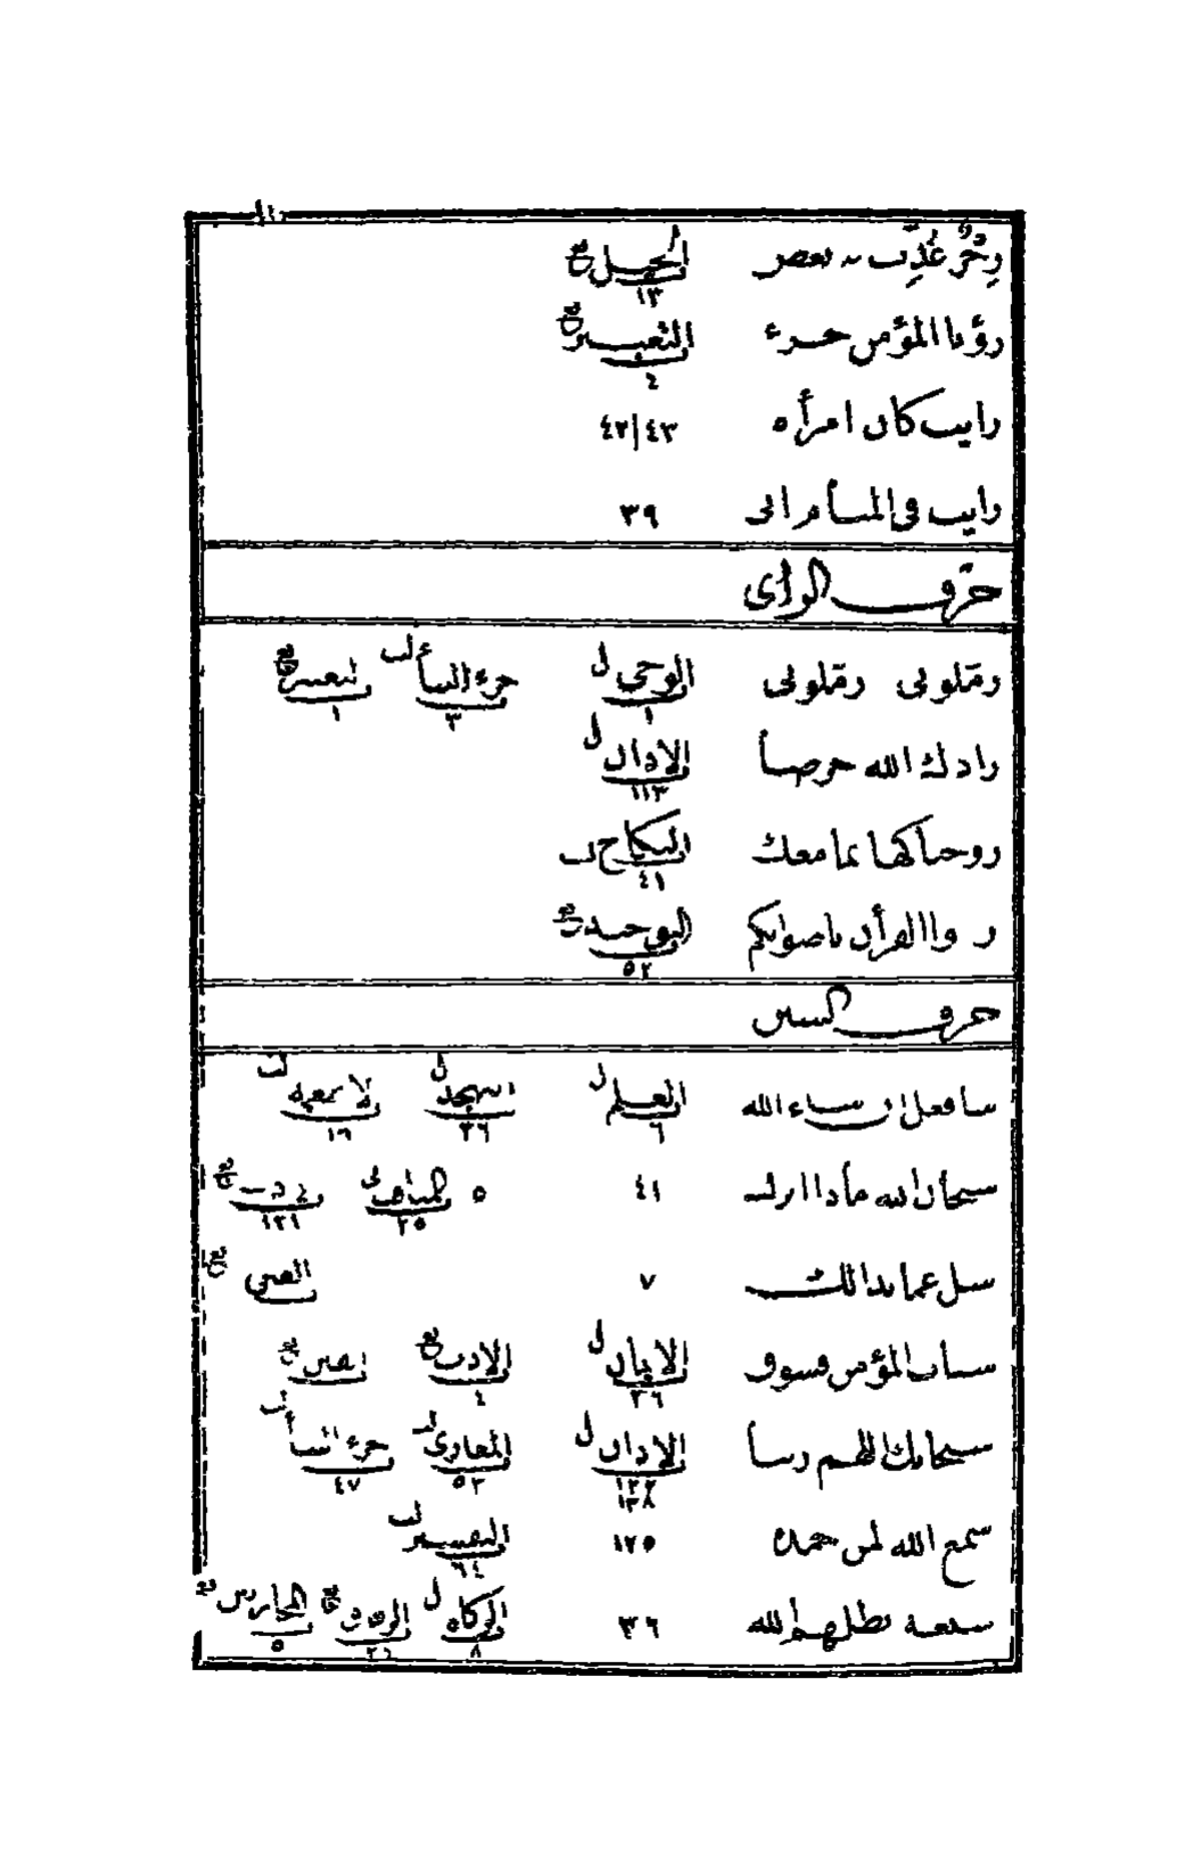 رجز عذب به بعض الحيل ع ١٣
رؤيا المؤمن جزء التعبير ع ٤
رايت كان امرأه ٤٢/٤٣
رايت في المنام اني ٣٩
حرف الزاى
زملونى زملونى الوحي ل ١ جزء النبأ ٣ التعبير ع ١
زادك الله حرصاً الاذان ل ١١٣
زوجناكها بما معك النكاح ٤١
ز واالقرأن باصواتكم التوحيد ع ٥٢
حرف السين
سافعل ان شاء الله العلم ل ٦ التهجد ل ٣٦ ١٦
سبحان الله ماذا انزل ٤١ ٥ المناقب ٢٥ ١٢١
سل عما بدالك ٧ الفتن ع
سباب المؤمن فسوق الايمان ل ٣٦ الادب ع ٤ الفتن ع
سبحانك اللهم ربنا الاذان ل ١٢٢ ١٣٨ المغازى ٥٢ جزء النبأ ٤٧
سمع الله لمن حمده ١٢٥ التفسير ٦٤
سبعة يظلهم الله ٣٦ الزكاة ل ٨ الرقاق ع ٢٤ المحاربين ع ٥